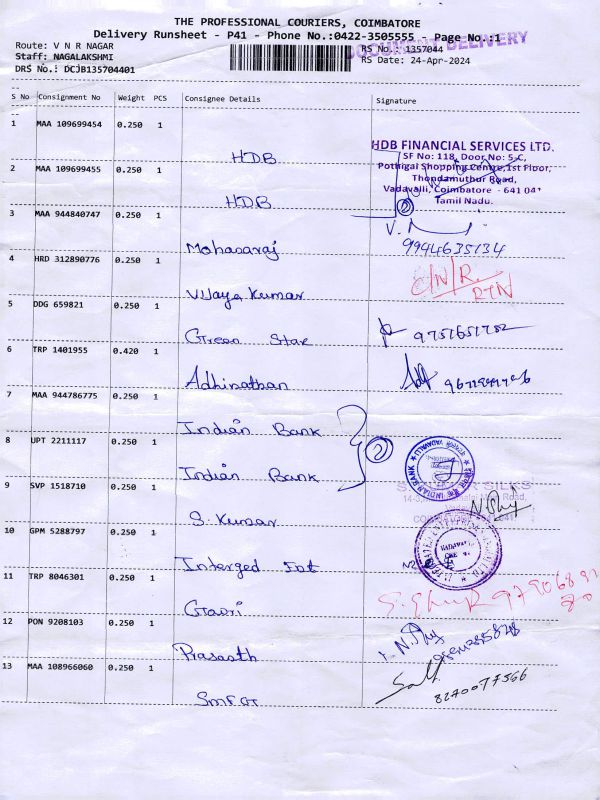 THE PROFESSIONAL COURIERS, COIMBATORE
Delivery Runsheet - P41 - Phone No.:0422-3505555 - Page No.:1
DOCUMENT DELIVERY
Route: V N R NAGAR RS No.: 1357044
Staff: NAGALAKSHMI RS Date: 24-Apr-2024
DRS No.: DCJB135704401
S No Consignment No Weight PCS Consignee Details Signature
1 MAA 109699454 0.250 1
HDB
HDB FINANCIAL SERVICES LTD.
SF No: 118, Door No: 5-C,
Pothigai Shopping Centre, 1st Floor,
Thondamuthur Road,
Vadavalli, Coimbatore - 641 041
Tamil Nadu.
2 MAA 109699455 0.250 1
HDB
2
3 MAA 944840747 0.250 1
Maharaj
9944635134
4 HRD 312890776 0.250 1
Vijaya Kumar
C/N/R.
RTN
5 DDG 659821 0.250 1
Green Star
9751651782
6 TRP 1401955 0.420 1
Adhinathan
7 MAA 944786775 0.250 1
Indian Bank
2
8 UPT 2211117 0.250 1
Indian Bank
INDIAN BANK
9 SVP 1518710 0.250 1
S. Kumar
SILKS
10 GPM 5288797 0.250 1
11 TRP 8046301 0.250 1
Gowri
12 PON 9208103 0.250 1
Prasanth
13 MAA 108966060 0.250 1
8270077566